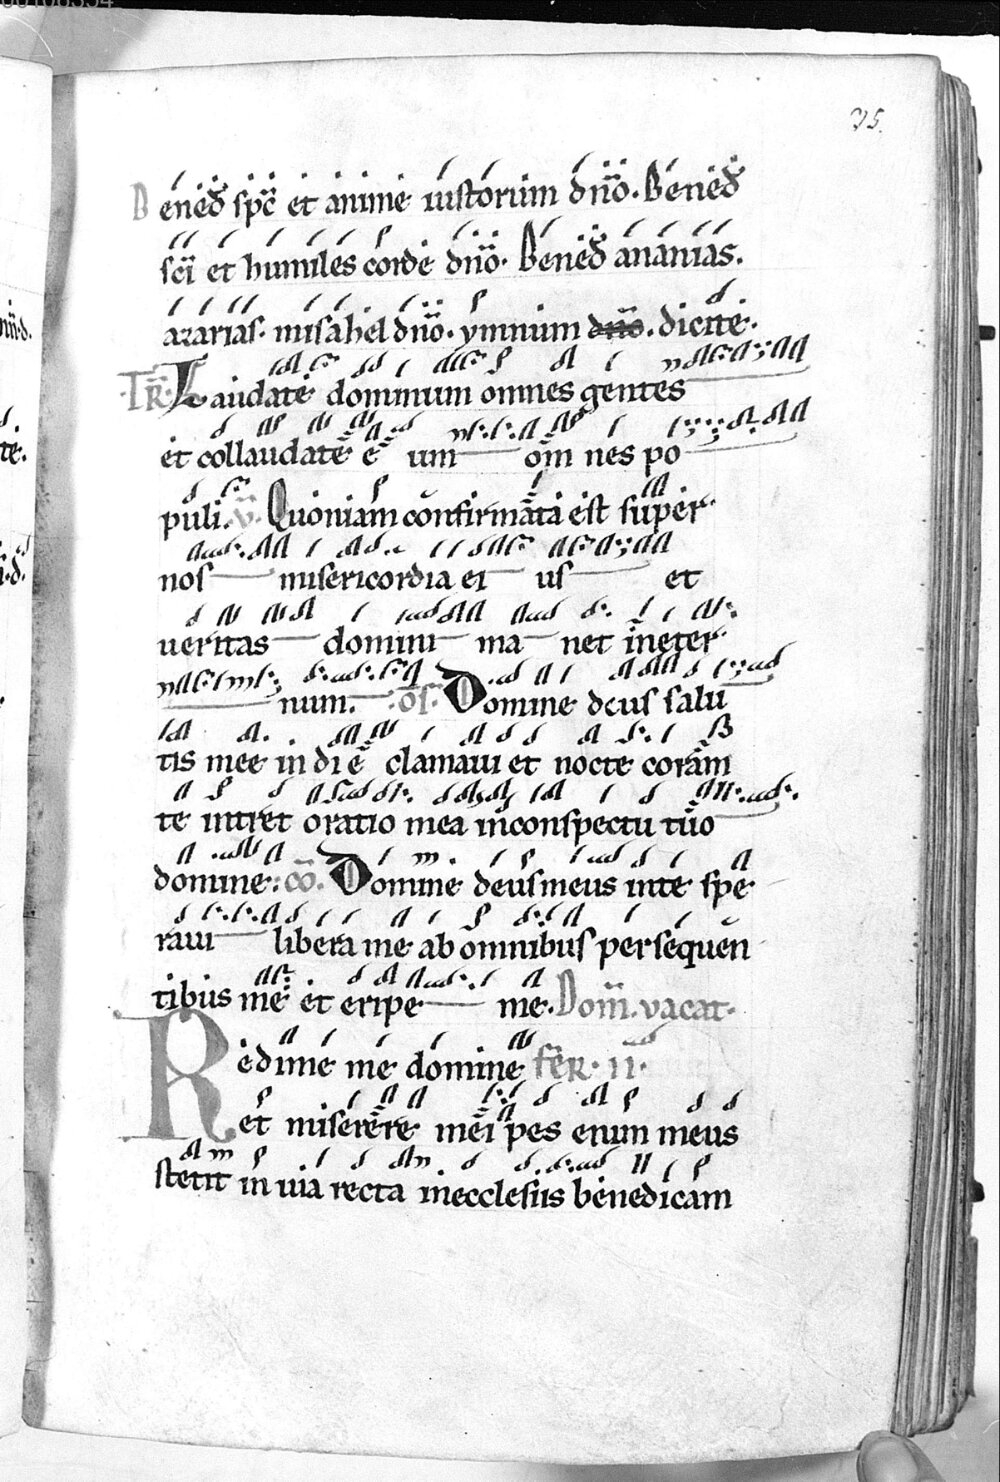 35.
Bened̄ sp̄c et anime iustorum dn̄o. Bened̄
sc̄i et humiles corde dn̄o. Bened̄ ananias.
azarias. misahel dn̄o. ymnum dn̄o. dicite.
TR̄. Laudate dominum omnes gentes
et collaudate eum om nes po
puli. v̄. Quoniam confirmata est super
nos misericordia ei us et
ueritas domini ma net ineter
num. of̄. Domine deus salu
tis mee in die clamaui et nocte coram
te intret oratio mea inconspectu tuo
domine: cō. Domine deus meus inte spe
raui libera me ab omnibus persequen
tibus me et eripe me. Dom̄. vacat.
Redime me domine fer. ii.
et miserere mei pes enim meus
stetit in uia recta inecclesiis benedicam